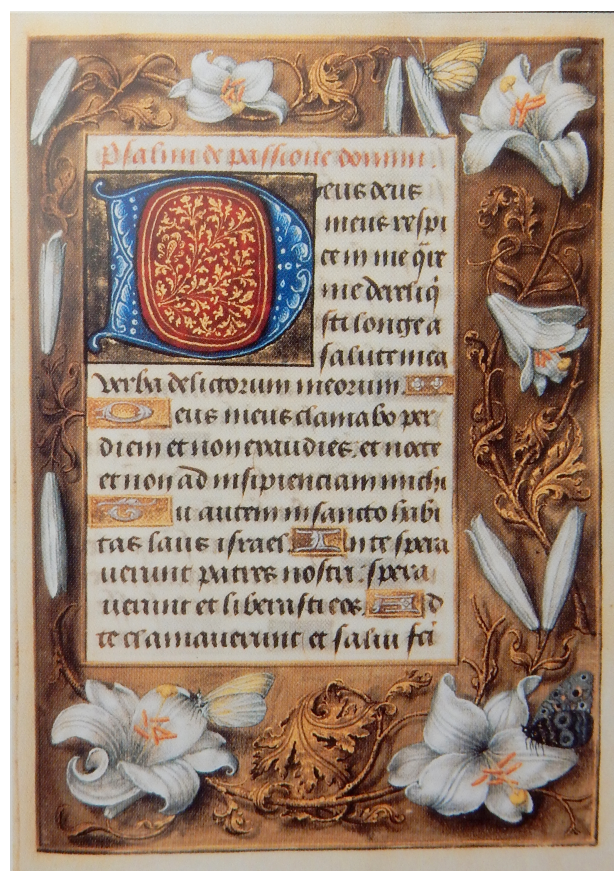 Psalmi de passione domini.
Deus deus
meus respi
ce in me q̄re
me dereliq̄
sti longe a
salute mea
verba delictorum meorum.
Deus meus clamabo per
diem et non exaudies, et nocte
et non ad insipienciam michi
Tu autem in sancto habi
tas laus israel. In te spera
uerunt patres nostri: spera
uerunt et liberasti eos Ad
te clamauerunt et salui fc̄i